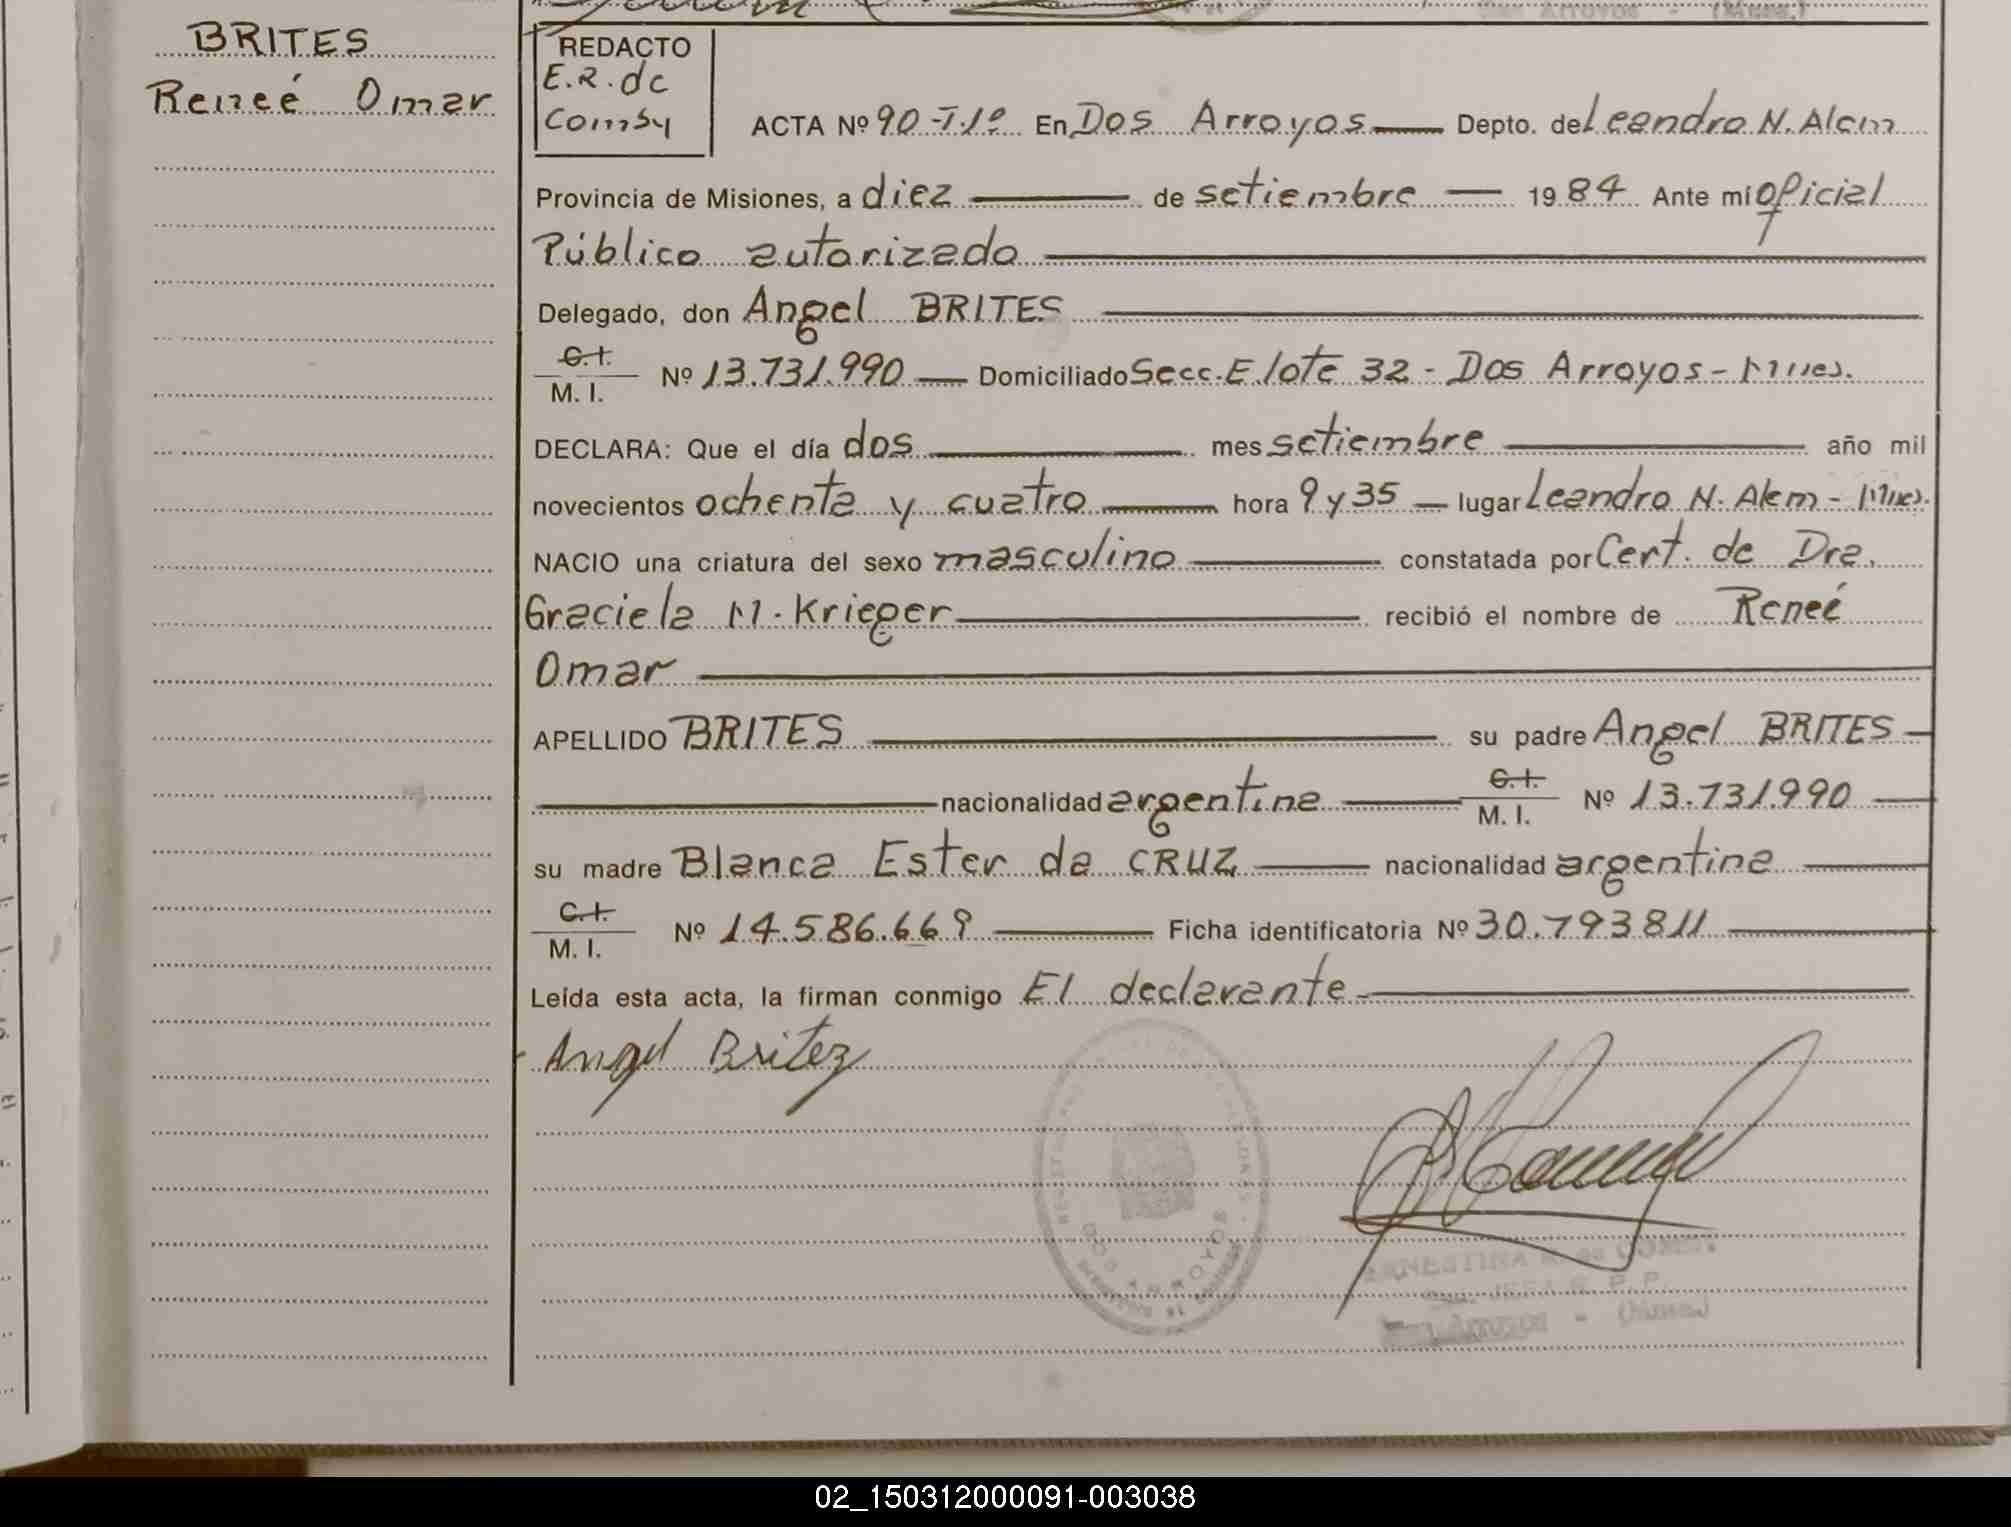 BRITES
Reneé Omar
REDACTO
E.R. de
Comby
ACTA Nº 90-T.1º En Dos Arroyos Depto. de Leandro N. Alem
Provincia de Misiones, a diez de setiembre 1984 Ante mí oficial
Público autorizado
Delegado, don Angel BRITES
C.I.
M. I. Nº 13.731.990 Domiciliado Secc. E. lote 32 - Dos Arroyos - Mnes.
DECLARA: Que el día dos mes setiembre año mil
novecientos ochenta y cuatro hora 9 y 35 lugar Leandro N. Alem - Mnes.
NACIO una criatura del sexo masculino constatada por Cert. de Dra.
Graciela M. Krieger recibió el nombre de Reneé
Omar
APELLIDO BRITES su padre Angel BRITES
nacionalidad argentina C.I.
M. I. Nº 13.731.990
su madre Blanca Ester da CRUZ nacionalidad argentina
C.I.
M. I. Nº 14.586.669 Ficha identificatoria Nº 30.793811
Leída esta acta, la firman conmigo El declarante
Angel Britez
DOS ARROYOS
ERNESTINA R. de COMBY
JEFA R. P. P.
Dos Arroyos - (Mnes.)
02_150312000091-003038